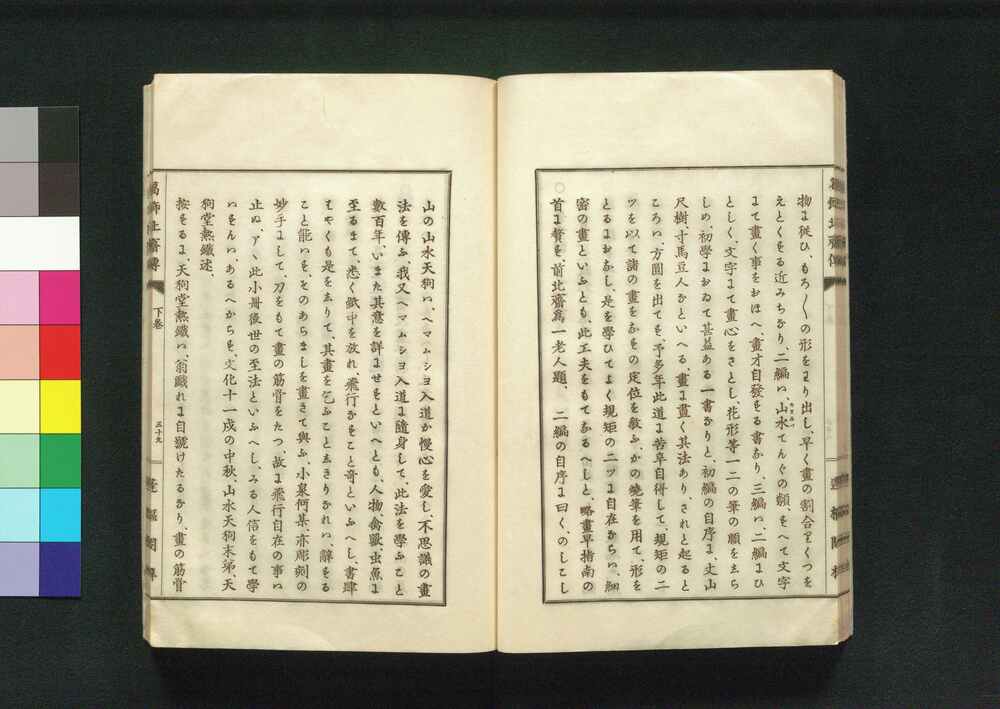 物ょ從ひ、もろ〱の形をより出し、早く畫の割合をくつを
えとくをる近みちあり、二編ハ、山水てんぐの類、をへて文字
よて畫く事をおほへ、畫才自發をる書あり、三編ハ、二編よひ
としく、文字よて畫心をさとし、花形等一二の筆の順をゑら
しめ、初學よおゐて甚益ある一書ありと、初編の自序よ、丈山
尺樹、寸馬豆人あといへる、畫よ畫く其法あり、されと起ると
ころハ、方圓を出てを、予多年此道よ苦辛自得して、規矩の二
ツを以て諸の畫をあをの定位を敎ふ、かの燒筆を用て、形を
とるよおあし、是を學ひてよく規矩の二ッよ自在あらハ、細
密の畫といふとも、此工夫をもてあるへしと、略畫早指南の
首よ贅を、前北齋爲一老人題、　二編の自序よ曰く、のしこし
山の山水天狗ハ、ヘマムシヨ入道か慢心を愛し、不思議の畫
法を傳ふ、我又ヘマムシヨ入道よ隨身して、此法を學ふこと
數百年、いまた其意を詳よせをといへとも、人物、禽獸、虫魚よ
至るまて、悉く獄中を放れ、飛行あをこと奇といふへし、書肆
はやくも是をゑりて、其畫を乞ふことゑきりあれハ、辭をる
こと能ハを、そのあらましを畫きて與ふ、小泉何某、亦彫刻の
妙手よして、刀をもて畫の筋骨をたつ、故よ飛行自在の事ハ
止ぬ、アヽ此小冊後世の至法といふへし、みる人信をもて學
ハをんハ、あるへからを、文化十一戌の中秋、山水天狗末弟、天
狗堂熱鐵述、
按をるよ、天狗堂熱鐵ハ、翁戲れよ自號けたるあり、畫の筋骨
葛飾北齋傳
下卷
三十九